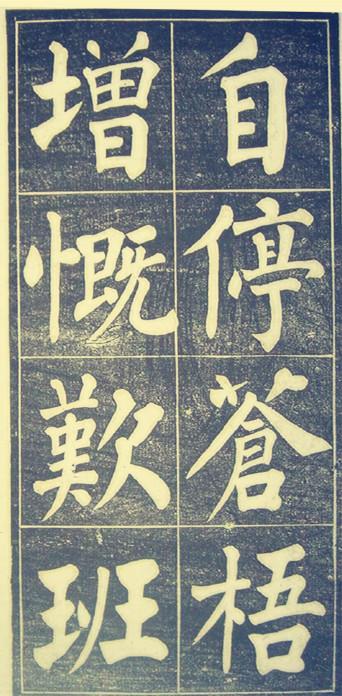 自停蒼梧
增慨歎班